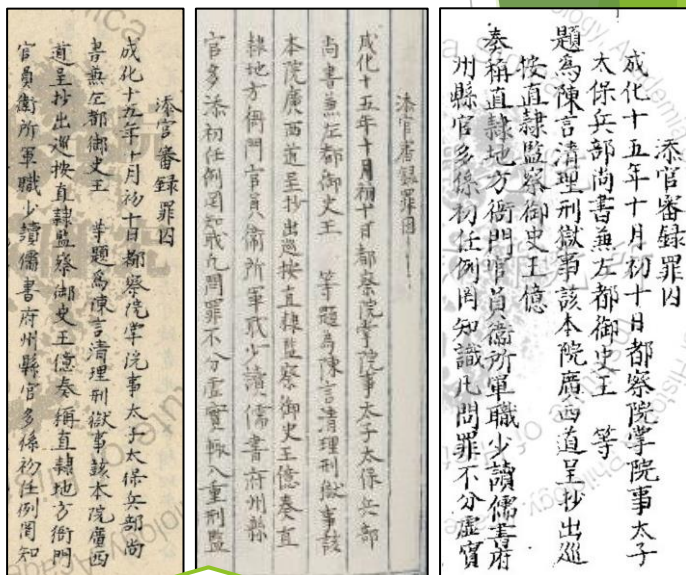 添官審録罪囚
成化十五年十月初十日都察院掌院事太子太保兵部尚
書兼左都御史王 等題為陳言清理刑獄事該本院廣西
道呈抄出巡按直隷監察御史王億奏稱直隷地方衙門
官員衛所軍職少讀儒書府州縣官多係初任例罔知
添官審録罪囚
成化十五年十月初十日都察院掌院事太子太保兵部
尚書兼左都御史王 等題為陳言清理刑獄事該
本院廣西道呈抄出巡按直隷監察御史王億奏直
隷地方衙門官員衛所軍職少讀儒書府州縣
官多添初任例罔知或凡問罪不分虛實輙入重刑監
添官審録罪囚
成化十五年十月初十日都察院掌院事太子
太保兵部尚書兼左都御史王 等
題為陳言清理刑獄事該本院廣西道呈抄出巡
按直隷監察御史王億
奏稱直隷地方衙門官員衛所軍職少讀儒書府
州縣官多係初任例罔知識凡問罪不分虛實